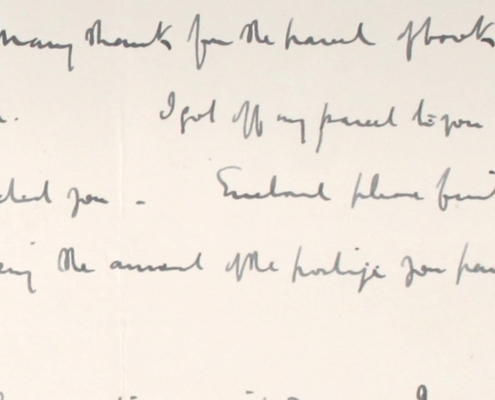 many thanks for the parcel of books
I got off my parcel to you
you - Enclosed please find
the amount of the postage you